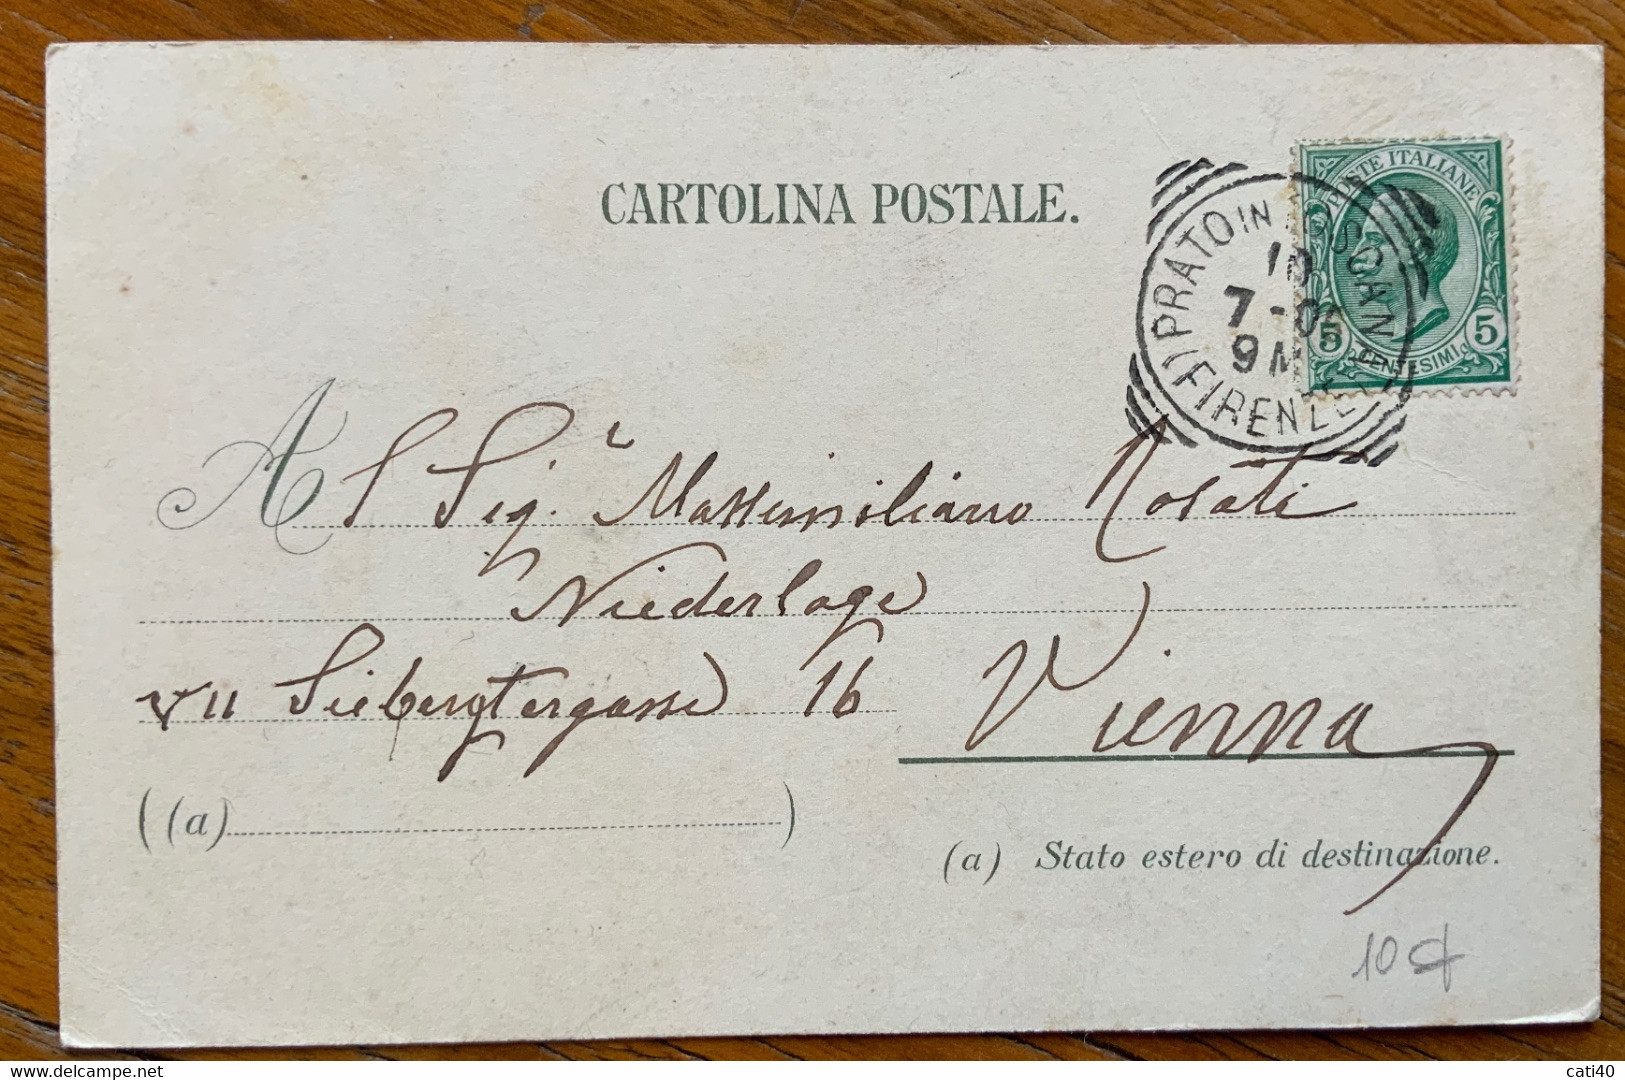 CARTOLINA POSTALE.
POSTE ITALIANE
5 5
CENTESIMI
PRATO IN TOSCANA
10
7-0
9M
(FIRENZE)
Al Sig.r Massimiliano Rosati
Niederlage
VII Siebergtergasse 16 Vienna
((a) )
(a) Stato estero di destinazione.
10
cati40